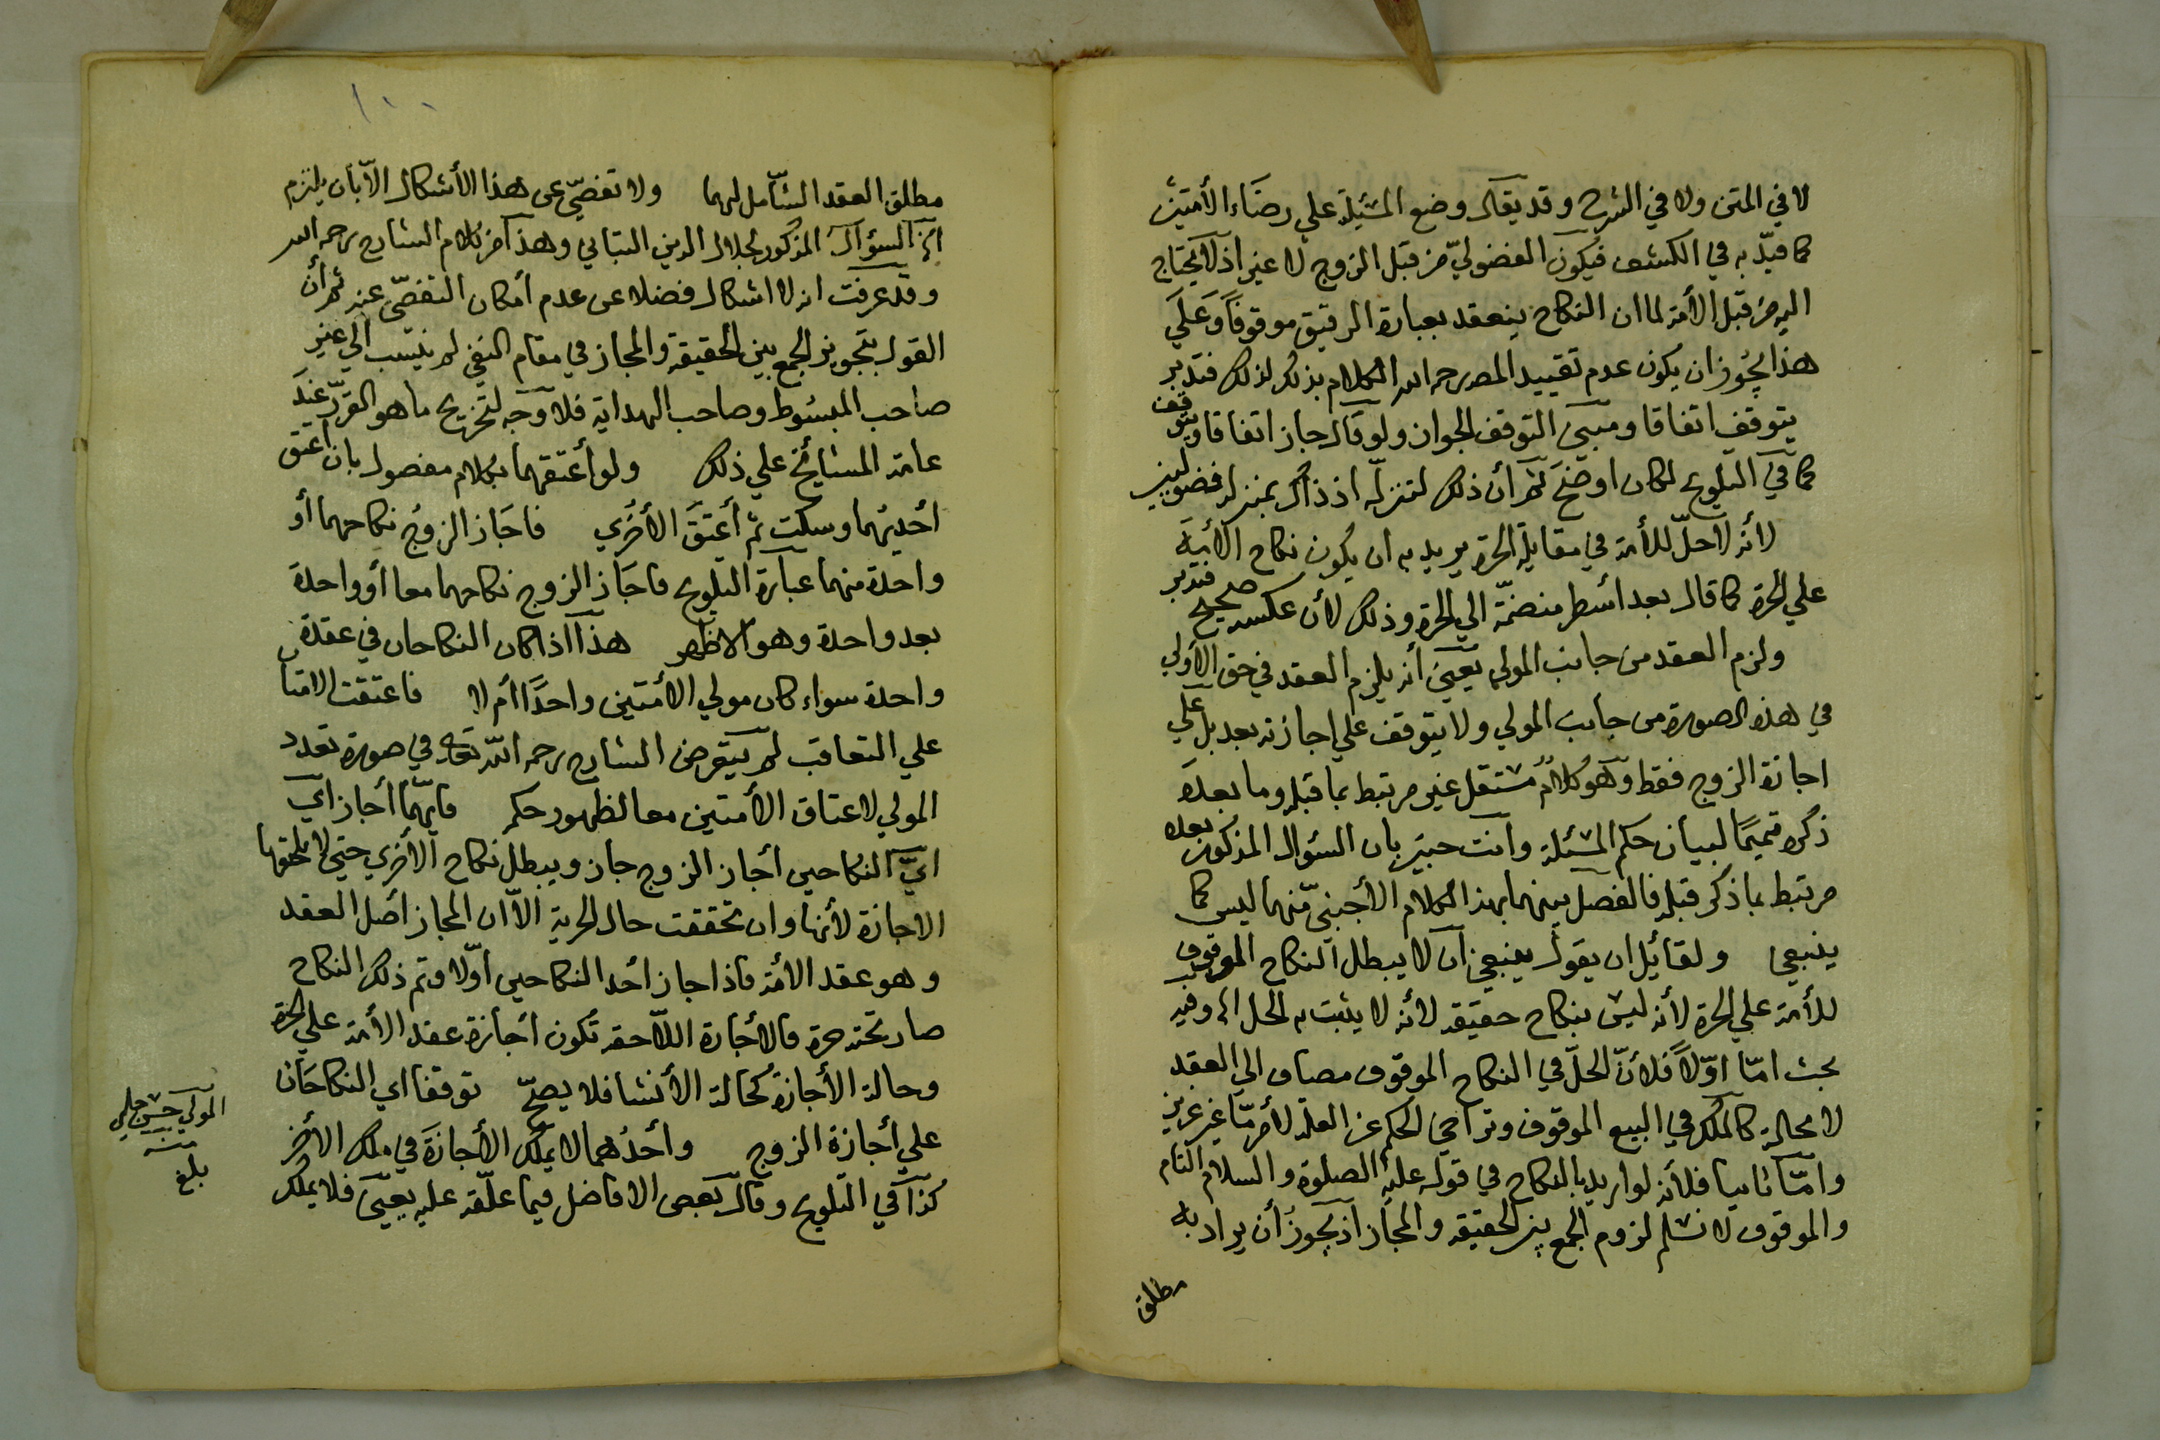 لا في المتن ولا في الشرح وقد يقال وضع المسئلة علي رضاء الأمتين
كما قيّد به في الكشف فيكون الفضوليّ من قبل الزوج لا غير اذ لا يحتاج
اليه من قبل الأمة لما ان النكاح ينعقد بعبارة الرقيق موقوفا وعلي
هذا يجوز ان يكون عدم تقييد المصر حمه الله الكلام بذلك لذلك فتدبر
يتوقف اتفاقا ومبني التوقف الجواز ولو قال جاز اتفاقا ويتوقف
كما في التلويح لكان اوضح ثم أن ذلك لتنزله اذ ذاك بمنزلة فضوليين
لأنه لا حلّ للأمة في مقابلة الحرة يريد به ان يكون نكاح الأمة
علي الحرة كما قال بعد أسطر منضمّة الي الحرة وذلك لأن عكسه صحيح فتدبر
ولزم العقد من جانب المولي يعني أنه يلزم العقد في حق الأولي
في هذه الصورة من جانب المولي ولا يتوقف علي اجازته بعد بل علي
اجازة الزوج فقط وهو كلام مستقل غير مرتبط بما قبله وما بعده
ذكره تتميما لبيان حكم المسئلة وانت خبير بان السؤال المذكور بعده
مرتبط بما ذكر قبله فالفصل بينهما بهذا الكلام الأجنبيّ منهما ليس كما
ينبغي ولقائل ان يقول ينبغي ان لا يبطل النكاح الموقوف
للأمة علي الحرة لأنه ليس بنكاح حقيقة لأنه لا يثبت به الحل اه وفيه
بحث امّا اوّلا فلأنّ الحلّ في النكاح الموقوف مضاف الي العقد
لا محالة كالملك في البيع الموقوف وتراخي الحكم عن العلة لأمر مّا غير عزيز
وامّا ثانيا فلأنه لو اريد بالنكاح في قوله عليه الصلوة والسلام التام
والموقوف لا نسلم لزوم الجمع بين الحقيقة والمجاز اذ يجوز أن يراد به
مطلق
مطلق العقد الشّامل لهما ولا تفصّي عن هذا الأشكال الّا بأن يلتزم
اه السؤال المذكور لجلال الدين التباني وهذا آخر كلام الشارح رحمه الله
وقد عرفت انه لا اشكال فضلا عن عدم أمكان التفصّي عنه ثم أن
القول بتجويز الجمع بين الحقيقة والمجاز في مقام النفي لم ينسب الي غير
صاحب المبسوط وصاحب الهداية فلا وجه لتخريج ما هو المقرّر عند
عامة المشائخ علي ذلك ولو أعتقهما بكلام مفصول بان اعتق
احديهما وسكت ثم أعتق الأخري فاجاز الزوج نكاحهما أو
واحدة منهما عبارة التلويح فاجاز الزوج نكاحهما معا أو واحدة
بعد واحدة وهو الاظهر هذا اذا كان النكاحان في عقدة
واحدة سواء كان مولي الأمتين واحدًا أم لا فاعتقت الامتان
علي التعاقب لم يتعرض الشارح رحمه الله تعه في صورة تعدد
المولي لاعتاق الأمتين معا لظهور حكمه فايهما أجاز اي
ايّ النكاحين أجاز الزوج جاز ويبطل نكاح الأخري حتي لا يلحقها
الاجازة لأنها وان تحققت حال الحرية الّا ان المجاز أصل العقد
وهو عقد الأمة فاذا اجاز أحد النكاحين اوّلا وتم ذلك النكاح
صار تحته حرة فالأجازة اللّاحقة تكون اجازة عقد الأمة علي الحرة
وحالة الأجازة كحالة الأنشا فلا يصحّ توقفا اي النكاحان
علي أجازة الزوج وأحدهما لا يملك الأجازة في ملك الأخر
كذا في التلويح وقال بعض الافاضل فيما علّقه عليه يعني فلا يملك
المولي حسن چلبي
منه
بلغ
١٠٠